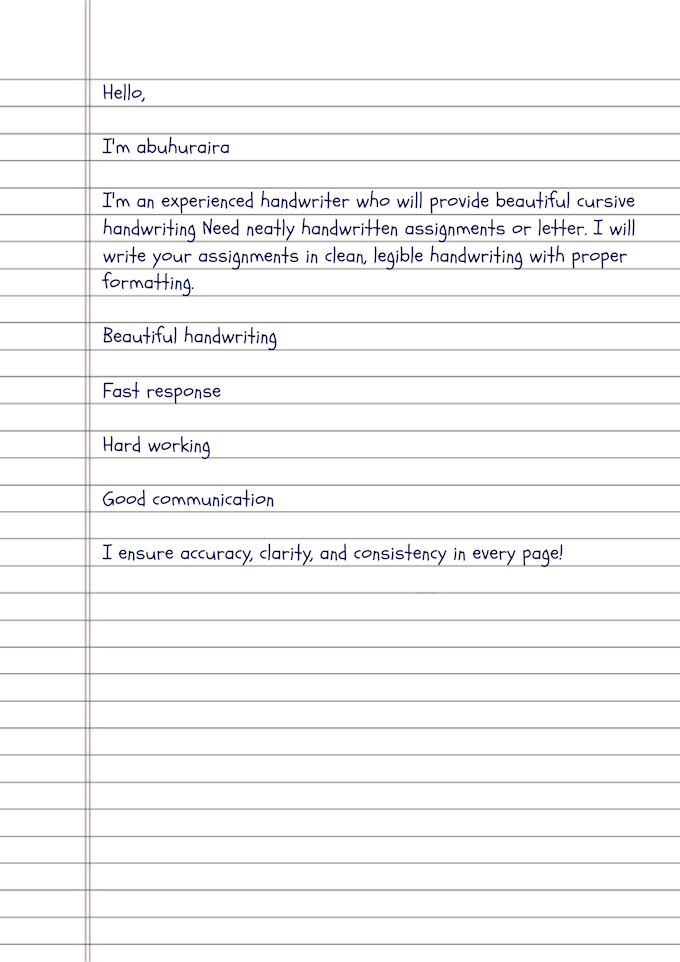 Hello,
I'm abuhuraira
I'm an experienced handwriter who will provide beautiful cursive
handwriting Need neatly handwritten assignments or letter. I will
write your assignments in clean, legible handwriting with proper
formatting.
Beautiful handwriting
Fast response
Hard working
Good communication
I ensure accuracy, clarity, and consistency in every page!